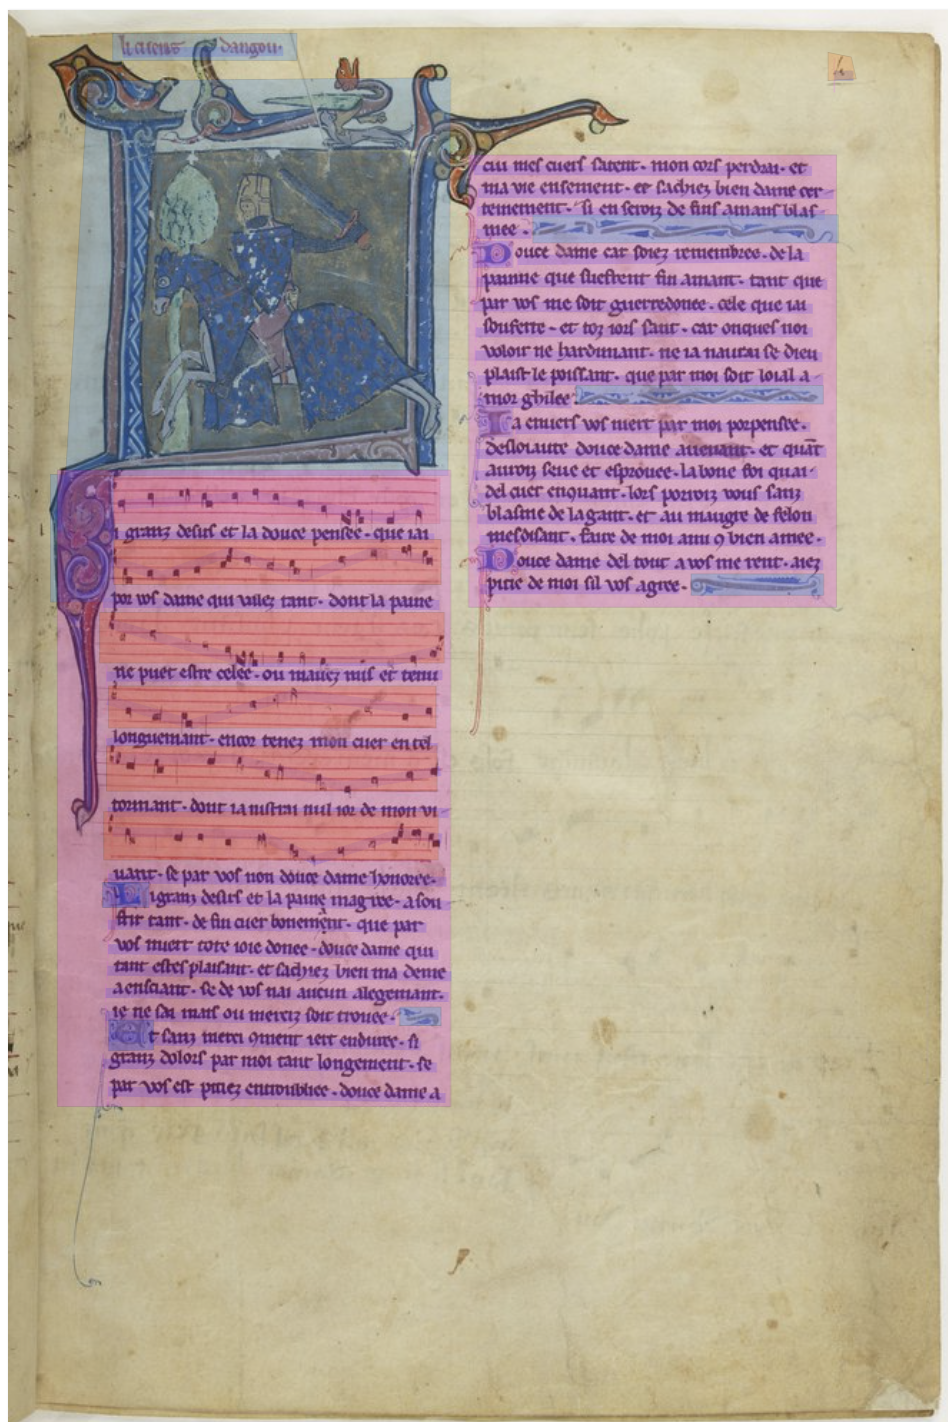 li cuens dangou.
i granz desirs et la douce pensee. que iai
por vos dame qui vailez tant. dont la paine
ne puet estre celee. ou mauez mis et tenu
longuemant. encor tenez mon cuer en tel
tormant. dont ia nistrai nul ior de mon vi
uant. se par vos non douce dame honoree.
Li granz desirs et la paine magree. a sou
frir tant. de fin cuer bonement. que par
vos niert tote ioie donee. douce dame qui
tant estes plaisant. et sachiez bien ma deme
a enscient. se de vos nai aucun alegemant.
ie ne sai mais ou merciz soit trouee.
Et sanz merci 9ment iert enduree. si
granz dolors par moi tant longement. se
par vos est pitiez entroubliee. douce dame a
cui mes cuers satent. mon cors perdrai. et
ma vie ensement. et sachiez bien dame cer
teinement. si en seroiz de fins amans blas
mee.
Douce dame car soiez remembree. de la
painne que sueffrent fin amant. tant que
par vos me soit guerredonee. cele que iai
soufferte. et toz iors sant. car onques noi
voloir ne hardimant. ne ia naurai se dieu
plaist le poissant. que par moi soit loial a
mor ghilee.
Ia enuers vos niert par moi porpensee.
desloiaute douce dame auenant. et quāt
auroiz seue et esprouee. la bone foi quai
del cuer enquant. lors porroiz vous sanz
blasme de la gant. et au maugre de felon
mesdisant. faire de moi ami 9 bien amee.
Douce dame del tout a vos me rent. aiez
pitie de moi sil vos agree.